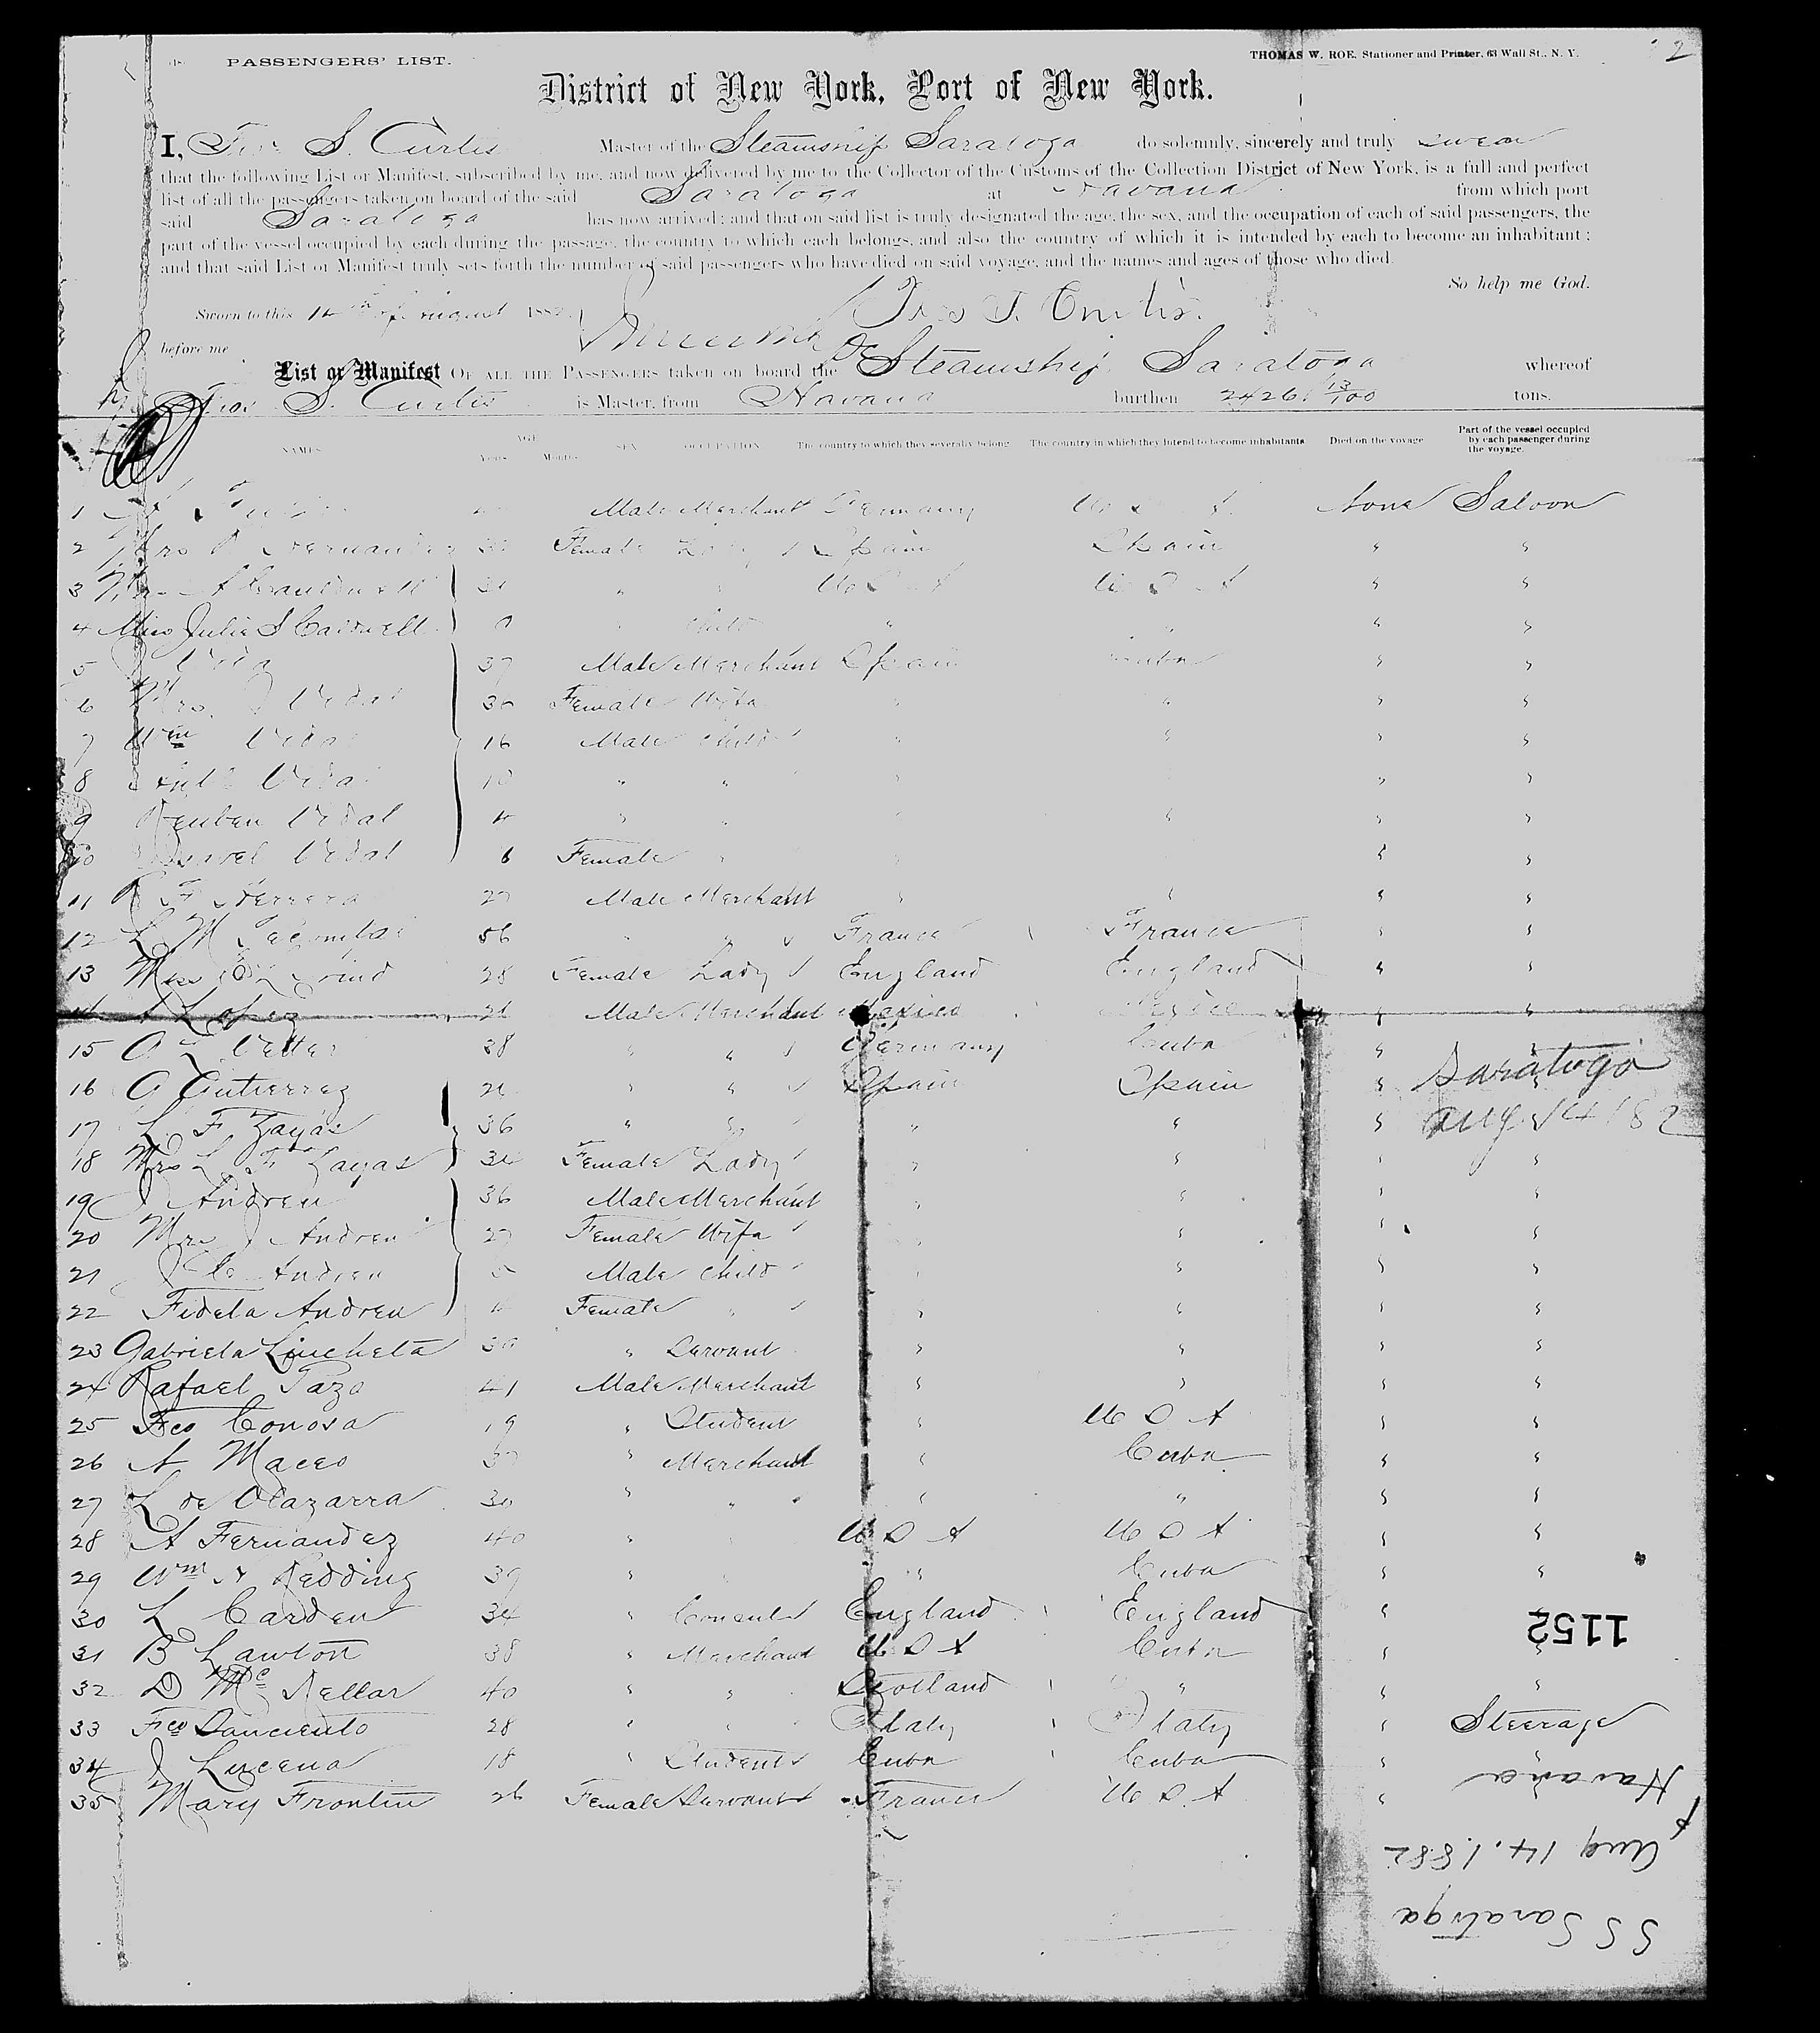 PASSENGERS' LIST.
THOMAS W. ROE, Stationer and Printer, 63 Wall St., N. Y.
2
District of New York, Port of New York.
I, S. Curtis Master of the Steamship Saratoga do solemnly, sincerely and truly swear
that the following List or Manifest, subscribed by me, and now delivered by me to the Collector of the Customs of the Collection District of New York, is a full and perfect
list of all the passengers taken on board of the said Saratoga at Havana from which port
said Saratoga has now arrived; and that on said list is truly designated the age, the sex, and the occupation of each of said passengers, the
part of the vessel occupied by each during the passage, the country to which each belongs, and also the country of which it is intended by each to become an inhabitant;
and that said List or Manifest truly sets forth the number of said passengers who have died on said voyage, and the names and ages of those who died.
So help me God.
Sworn to this 14th of August 1882
Curtis
before me
List or Manifest OF ALL THE PASSENGERS taken on board the Steamship Saratoga whereof
S. Curtis is Master, from Havana burthen 2426 13/100 tons.
NAMES AGE Years Months SEX OCCUPATION The country to which they severally belong The country in which they intend to become inhabitants Died on the voyage Part of the vessel occupied by each passenger during the voyage.
1 Male Merchant Germany U S A None Saloon
2 Mrs Hernandez Female Lady Spain Spain " "
3 Mrs A " " U S A U S A " "
4 Miss Julia S Caldwell " Child " " " "
5 Vidal 37 Male Merchant Spain Cuba " "
6 Mrs. J Vidal 30 Female Wife " " " "
7 Wm Vidal 16 Male Child " " " "
8 Vidal 10 " " " " " "
9 Reuben Vidal 4 " " " " " "
10 Vidal 6 Female " " " "
11 F Herrera 27 Male Merchant " " " "
12 L M 56 " " France France " "
13 Miss 28 Female Lady England England " "
14 A Lopez 26 Male Merchant Mexico Mexico " "
15 O Vetter 38 " " Germany Cuba " "
16 G Gutierrez 26 " " Spain Spain " "
Saratoga
17 L. F Zayas 36 " " " " " "
Aug 14 /82
18 Mrs L. F Zayas 34 Female Lady " " " "
19 J Andreu 36 Male Merchant " " " "
20 Mrs J Andreu 27 Female Wife " " " "
21 Andreu 5 Male Child " " " "
22 Fidela Andreu Female " " " " "
23 Gabriela Lincheta 30 " Servant " " " "
24 Rafael Pazo 41 Male Merchant " " " "
25 Fco Conosa 19 " Student " U S A " "
26 A Maceo 37 " Merchant " Cuba " "
27 L de Olazarra 30 " " " " " "
28 A Fernandez 40 " " U S A U S A " "
29 Wm A Redding 39 " " " Cuba " "
30 L Carden 34 " Consul England England " "
1152
31 B Lawton 38 " Merchant U S A Cuba " "
32 D Mc Kellar 40 " " Scotland " " "
33 Fco Sanciento 28 " " Italy Italy " Steerage
34 J Lucena 18 " Student Cuba Cuba " "
35 Mary Frontin 26 Female Servant France U S A "
Havana
Aug 14. 1882
S S Saratoga